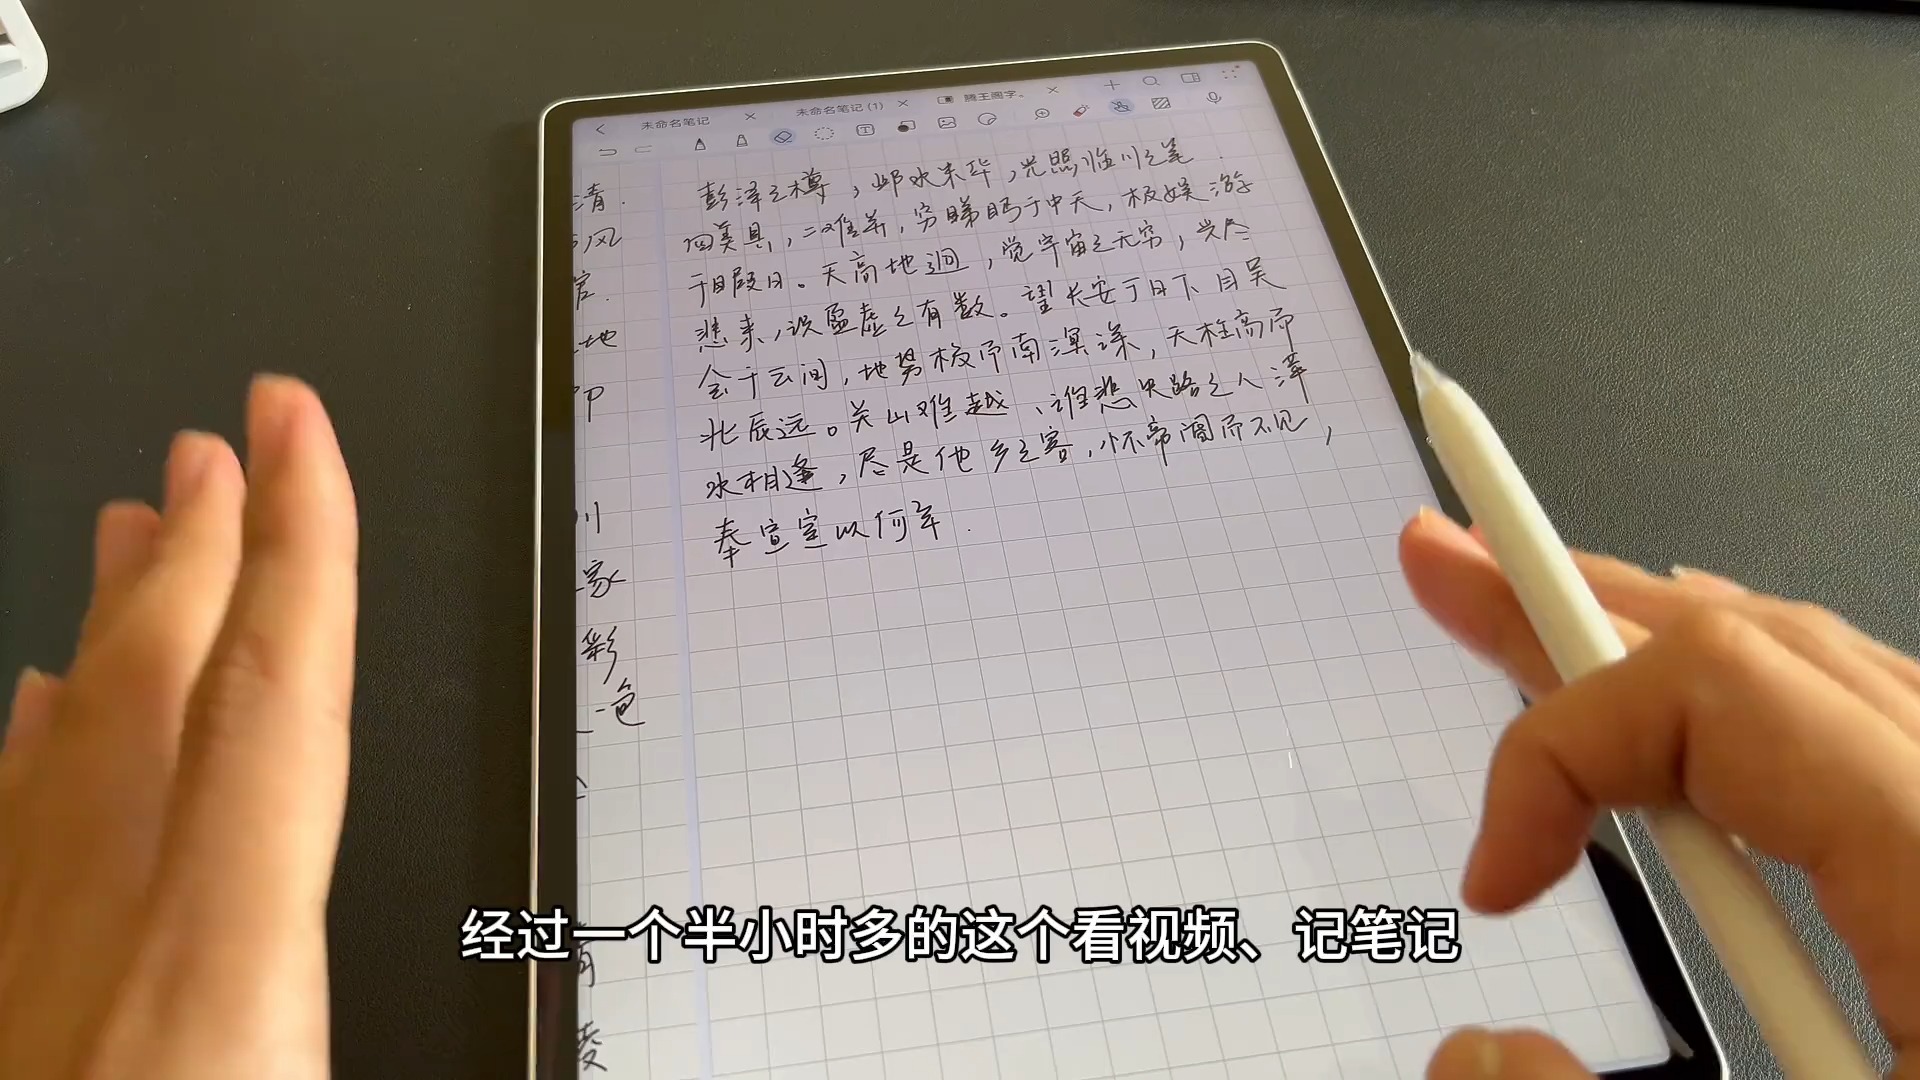 未命名笔记 未命名笔记 (1) 滕王阁字。
彭泽之樽，邺水朱华，光照临川之笔.
四美具，二难并，穷睇眄于中天，极娱游
于暇日。天高地迥，觉宇宙之无穷，兴尽
悲来，识盈虚之有数。望长安于日下 目吴
会于云间，地势极而南溟深，天柱高而
北辰远。关山难越、谁悲失路之人 萍
水相逢，尽是他乡之客，怀帝阍而不见，
奉宣室以何年.
清.
风
官.
地
川
家
彩
一色
凌
经过一个半小时多的这个看视频、记笔记